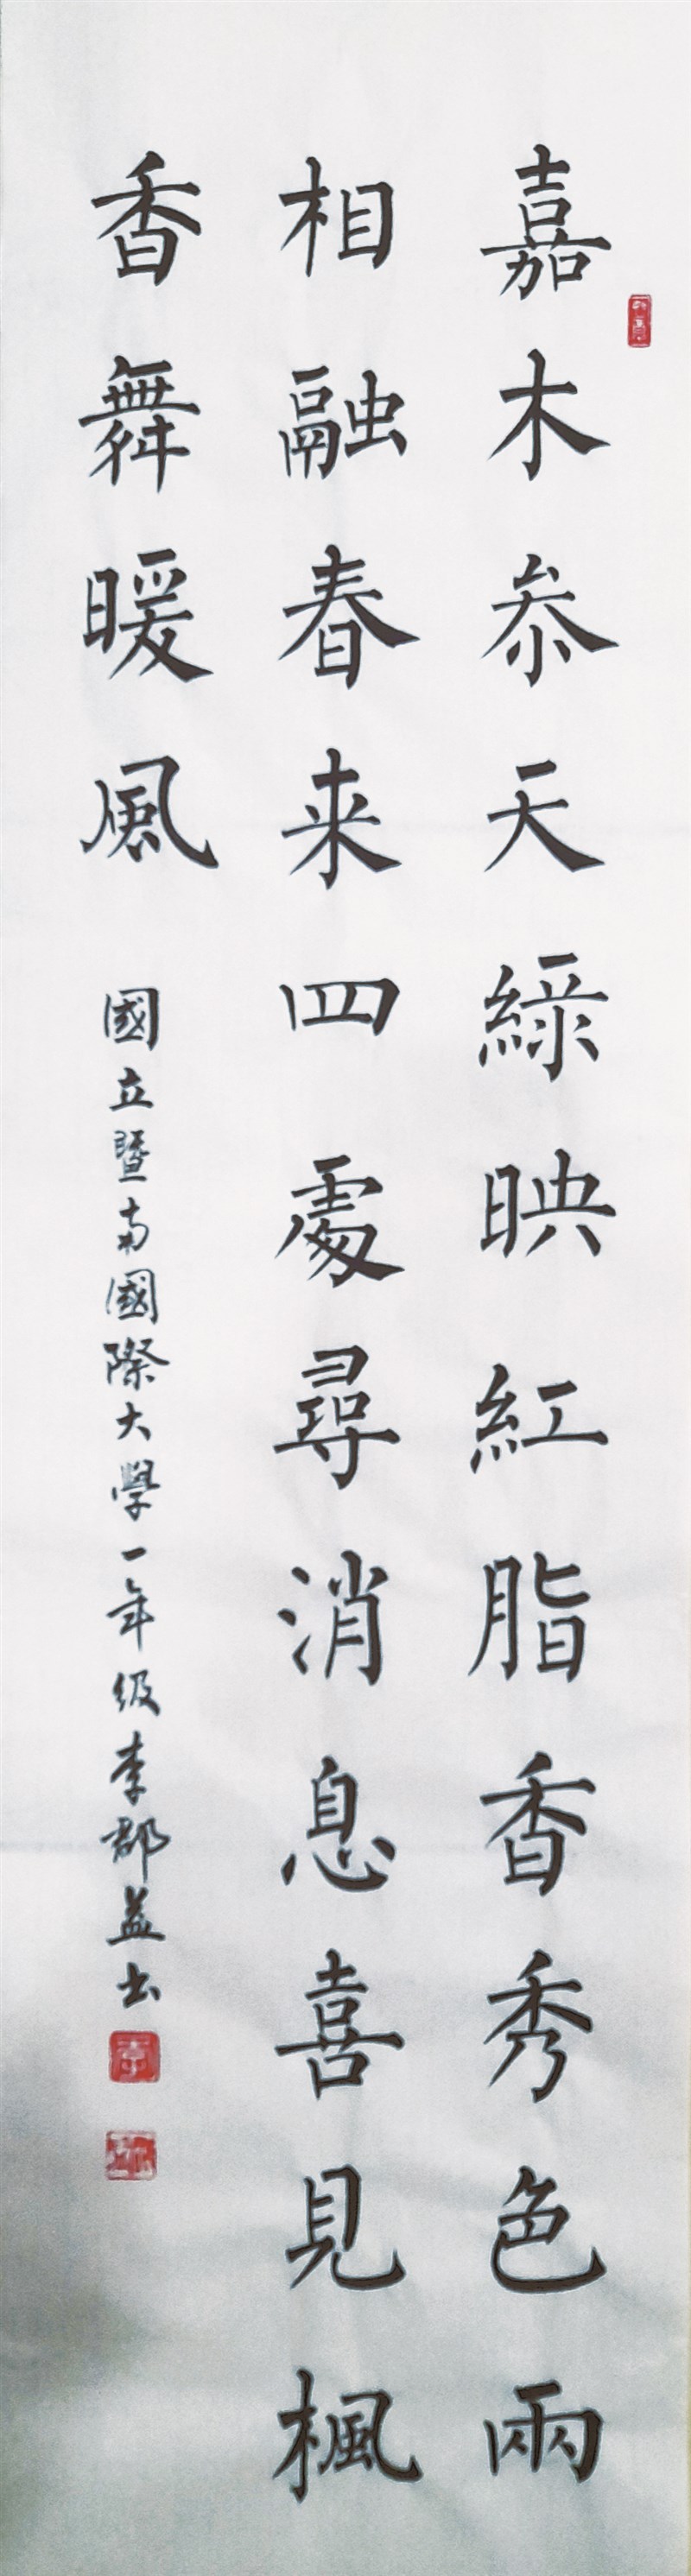 嘉木叅天綠映紅脂香秀色兩
相融春来四處尋消息喜見楓
香舞暖風
國立暨南國際大學一年级李郡益书